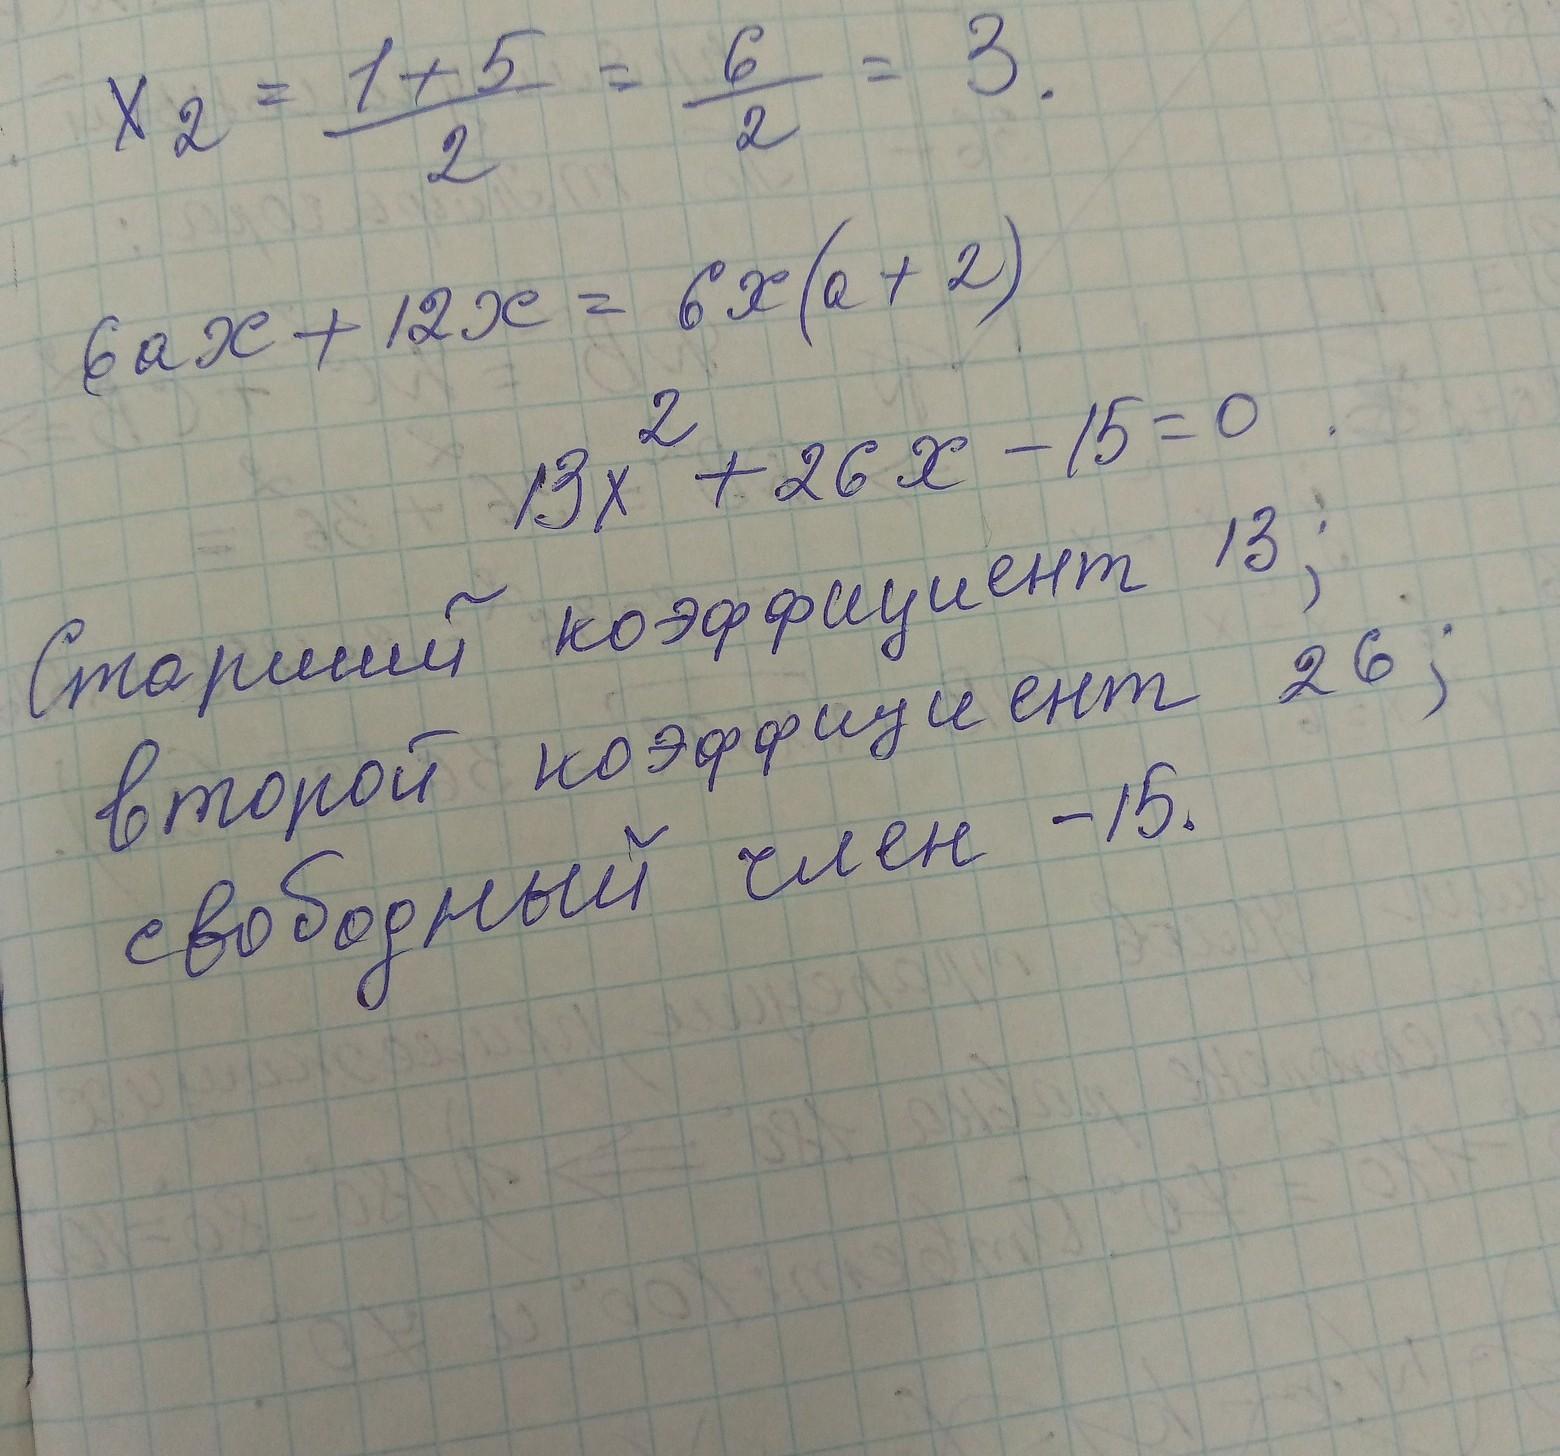 x₂ = (1+5)/2 = 6/2 = 3.
6ax + 12x = 6x(a + 2)
13x² + 26x - 15 = 0.
Старший коэффициент 13;
второй коэффициент 26;
свободный член -15.